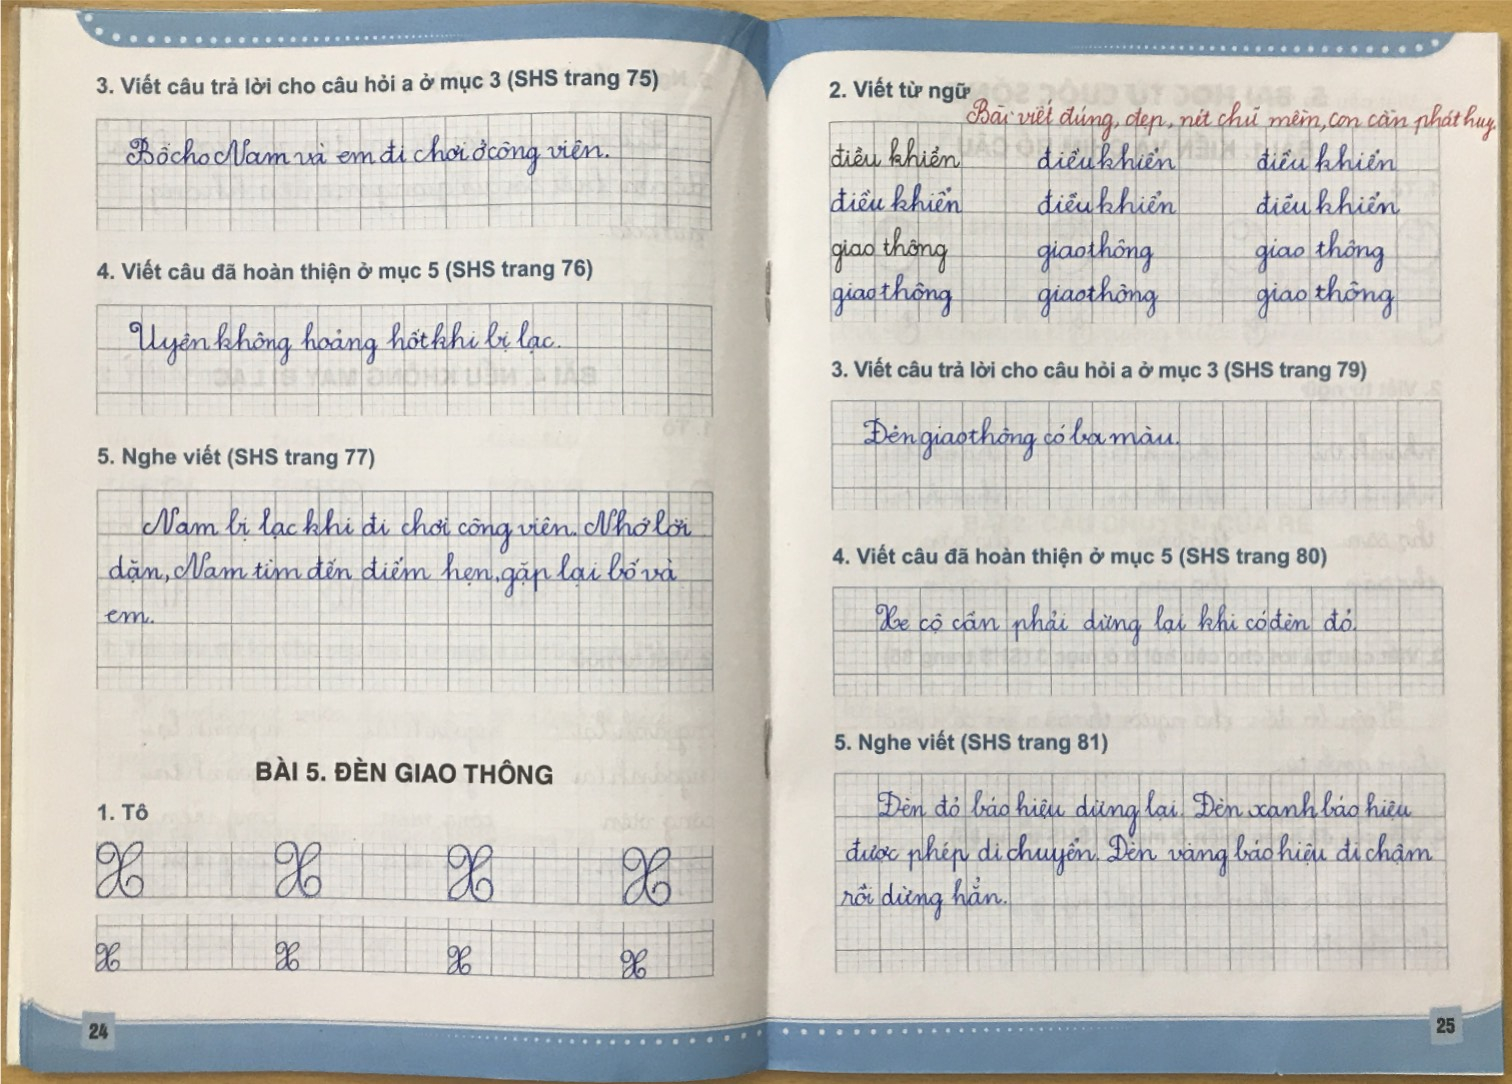 3. Viết câu trả lời cho câu hỏi a ở mục 3 (SHS trang 75)
Bố cho Nam và em đi chơi ở công viên.
4. Viết câu đã hoàn thiện ở mục 5 (SHS trang 76)
Uyên không hoảng hốt khi bị lạc.
5. Nghe viết (SHS trang 77)
Nam bị lạc khi đi chơi công viên. Nhớ lời
dặn, Nam tìm đến điểm hẹn, gặp lại bố và
em.
BÀI 5. ĐÈN GIAO THÔNG
1. Tô
X X X X
X X X X
24
2. Viết từ ngữ
Bài viết đúng, đẹp, nét chữ mềm, con cần phát huy.
điều khiển điều khiển điều khiển
điều khiển điều khiển điều khiển
giao thông giao thông giao thông
giao thông giao thông giao thông
3. Viết câu trả lời cho câu hỏi a ở mục 3 (SHS trang 79)
Đèn giao thông có ba màu.
4. Viết câu đã hoàn thiện ở mục 5 (SHS trang 80)
Xe cộ cần phải dừng lại khi có đèn đỏ.
5. Nghe viết (SHS trang 81)
Đèn đỏ báo hiệu dừng lại. Đèn xanh báo hiệu
được phép di chuyển. Đèn vàng báo hiệu đi chậm
rồi dừng hẳn.
25